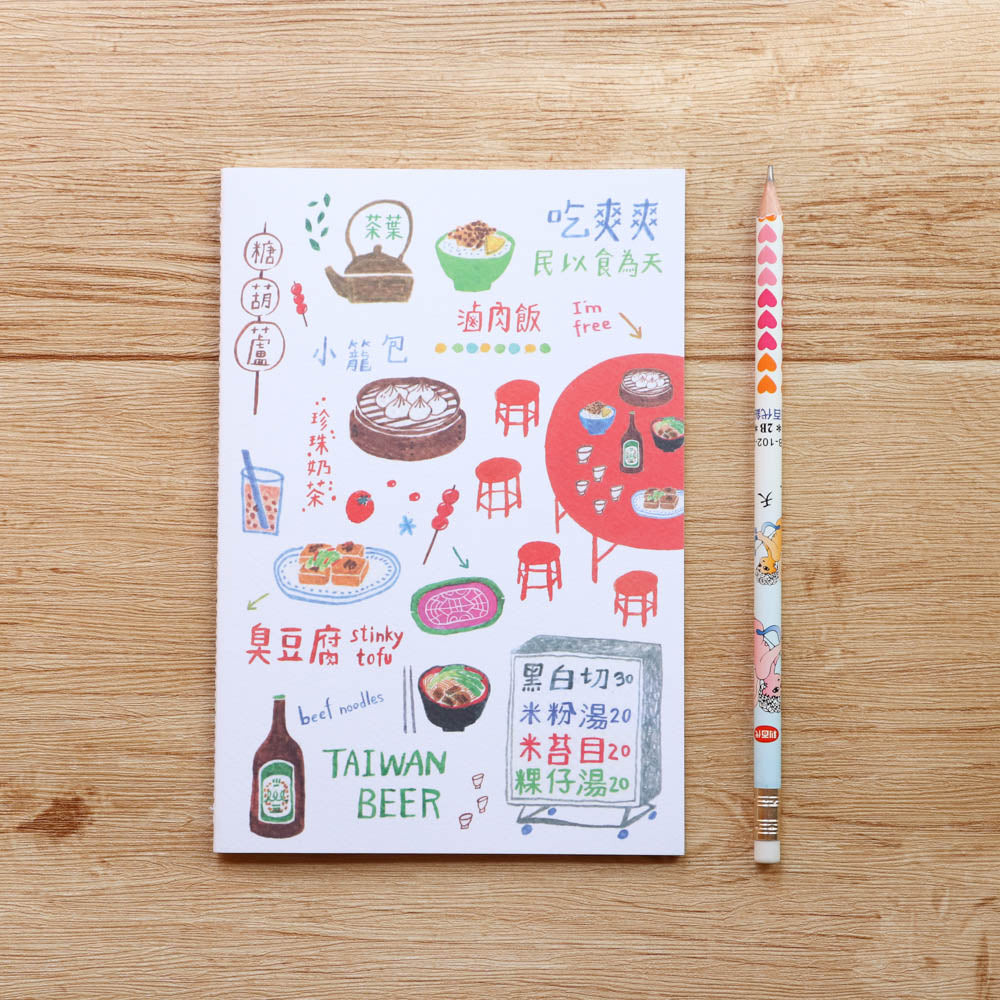 茶葉
吃爽爽
民以食為天
糖葫蘆
滷肉飯
I'm
free
小籠包
珍珠奶茶
臭豆腐
stinky
tofu
beef noodles
TAIWAN
BEER
黑白切30
米粉湯20
米苔目20
粿仔湯20
百代
*2B*
天
利百代